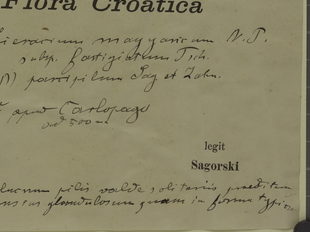 Flora Croatica
Hieracium magyaricum N. P.
subsp. fastigiatum Tsch.
parvipilum Nag et Zahn.
apud Carlopago
legit
Sagorski
pilis valde solitariis praeditum
glandulosum quam in forma typica